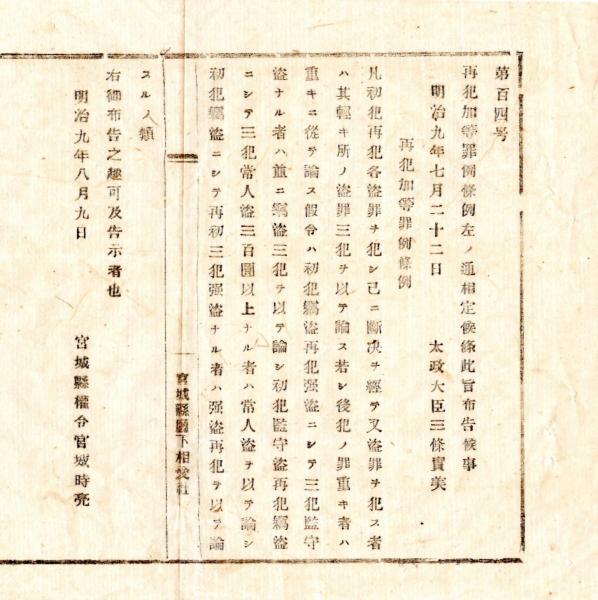 第百四号
再犯加等罪例條例左ノ通相定候條此旨布告候事
明治九年七月二十二日　太政大臣三條實美
再犯加等罪例條例
凡初犯再犯各盗罪ヲ犯シ已ニ斷决ヲ經テ又盗罪ヲ犯ス者
ハ其輕キ所ノ盗罪三犯ヲ以テ論ス若シ後犯ノ罪重キ者ハ
重キニ從テ論ス假令ハ初犯竊盗再犯强盗ニシテ三犯監守
盗ナル者ハ並ニ竊盗三犯ヲ以テ論シ初犯監守盗再犯竊盗
ニシテ三犯常人盗三百圓以上ナル者ハ常人盗ヲ以テ論シ
初犯竊盗ニシテ再初三犯强盗ナル者ハ强盗再犯ヲ以テ論
スル ノ類
宮城縣廳下相愛社
右御布告之趣可及告示者也
明治九年八月九日　宮城縣權令宮城時亮